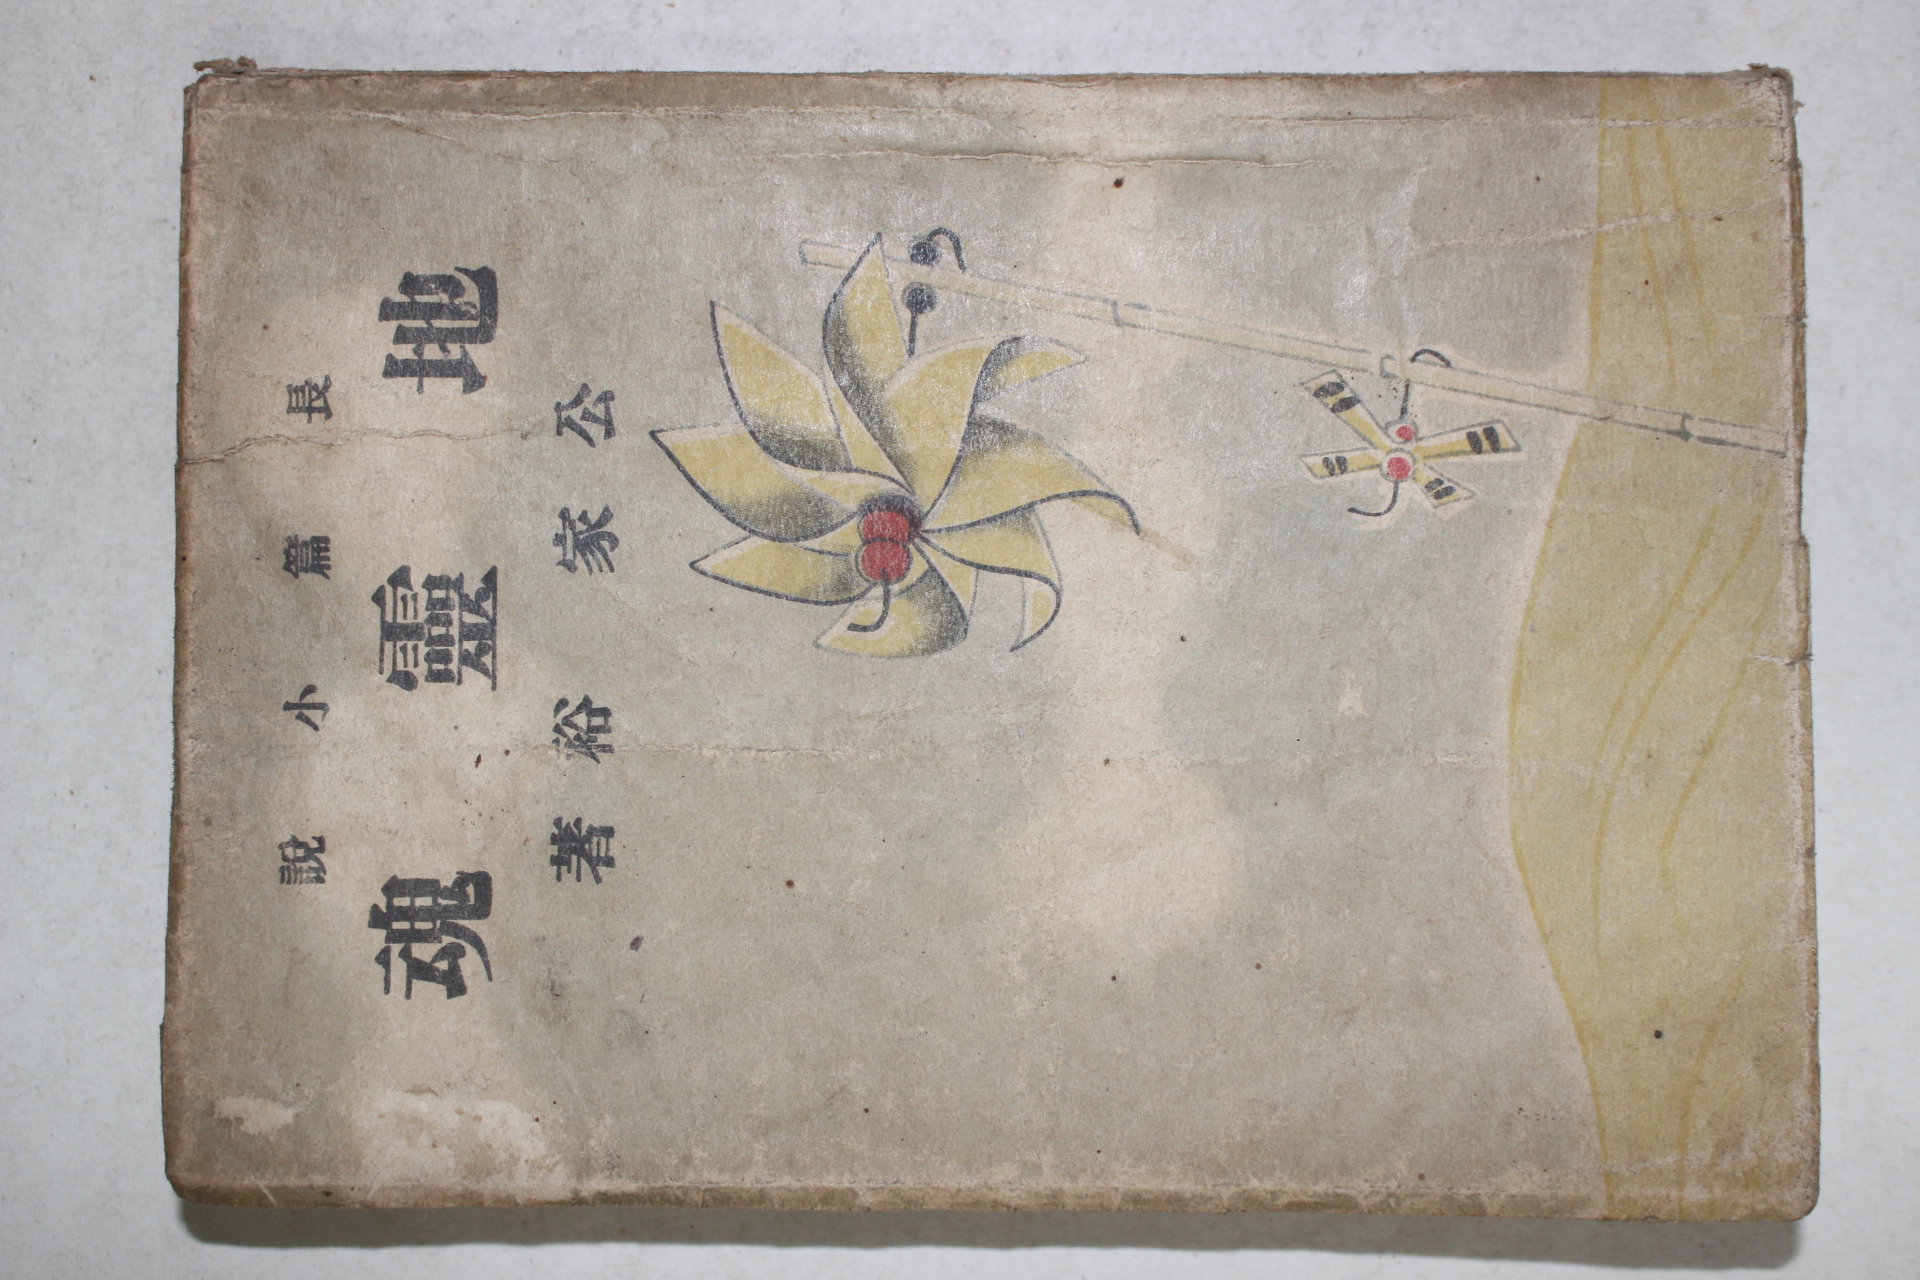 長篇小說
地靈魂
公家裕著